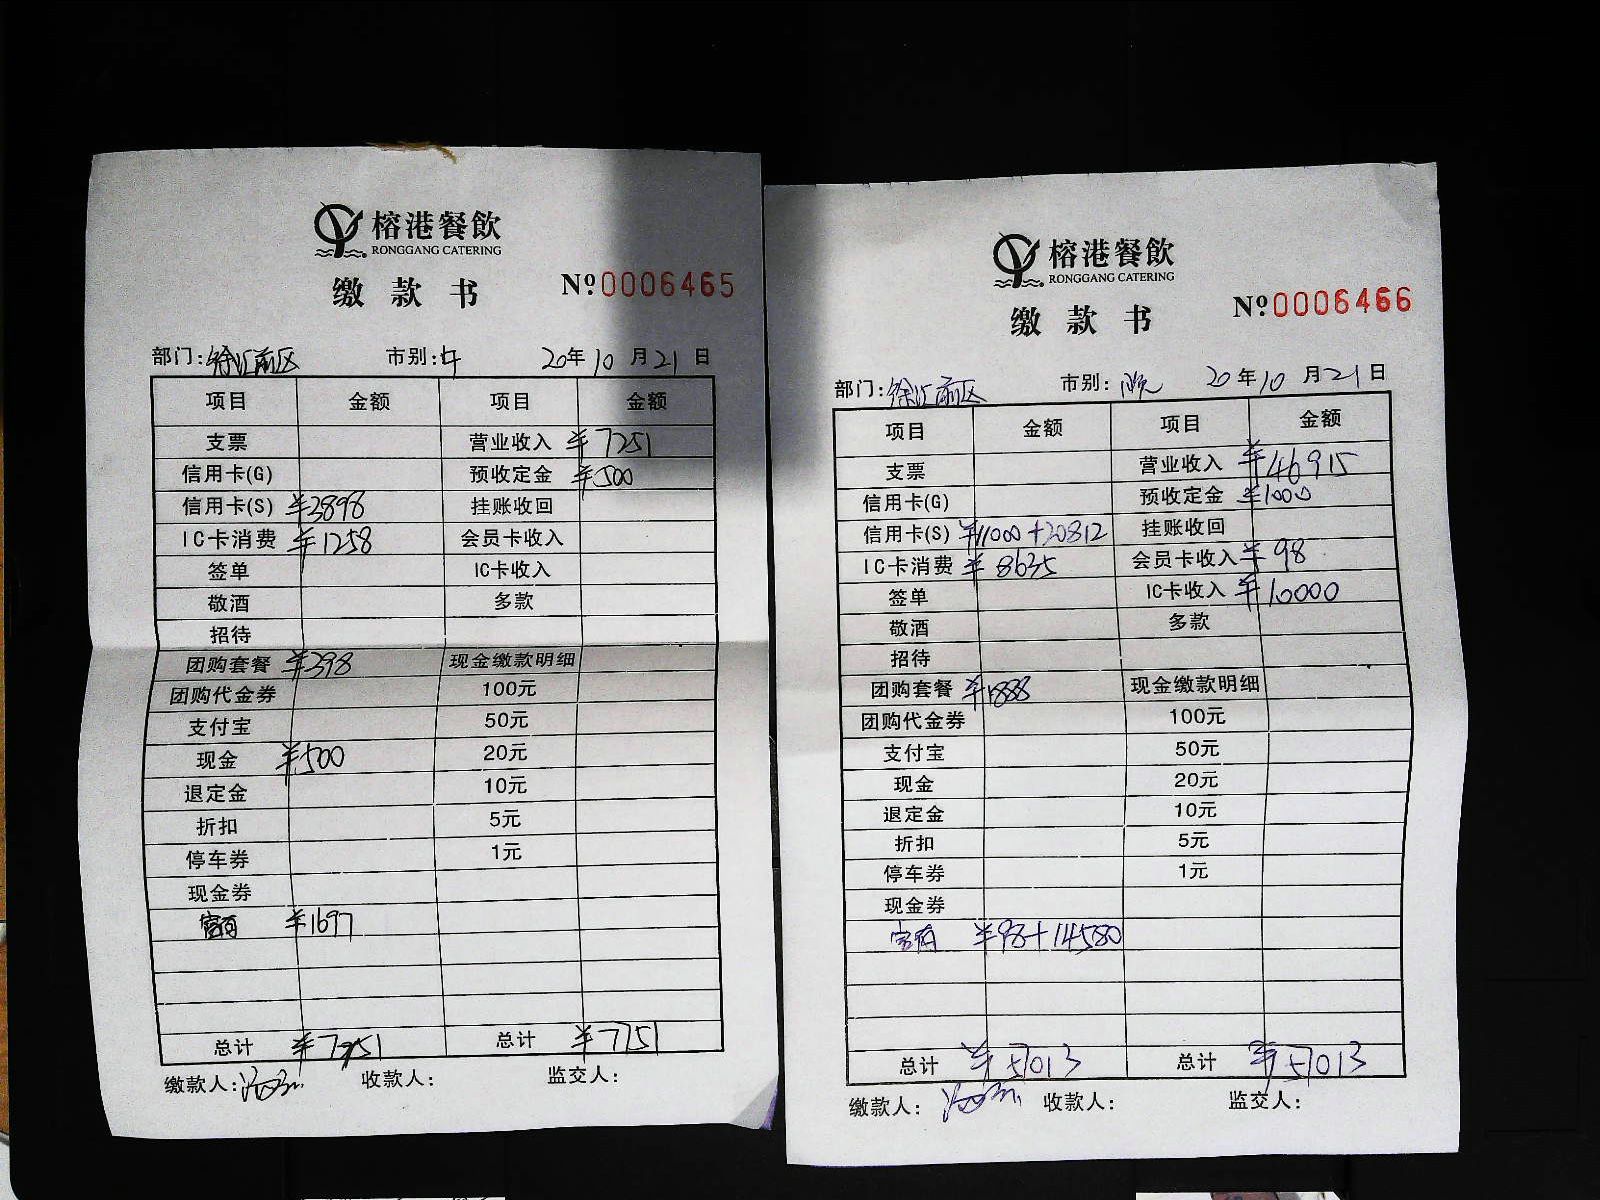 榕港餐飲
RONGGANG CATERING
缴款书
№0006465
部门:徐汇前区 市别:午 20年10月21日
项目 金额 项目 金额
支票 营业收入 ¥7251
信用卡(G) 预收定金 ¥500
信用卡(S) ¥3898 挂账收回
IC卡消费 ¥1258 会员卡收入
签单 IC卡收入
敬酒 多款
招待
团购套餐 ¥398 现金缴款明细
团购代金券 100元
支付宝 50元
现金 ¥500 20元
退定金 10元
折扣 5元
停车券 1元
现金券
¥1697
总计 ¥7751 总计 ¥7751
缴款人: 收款人: 监交人:
榕港餐飲
RONGGANG CATERING
缴款书
№0006466
部门:徐汇前区 市别:晚 20年10月21日
项目 金额 项目 金额
支票 营业收入 ¥46915
信用卡(G) 预收定金 ¥1000
信用卡(S) ¥11000+20812 挂账收回
IC卡消费 ¥8635 会员卡收入 ¥98
签单 IC卡收入 ¥10000
敬酒 多款
招待
团购套餐 ¥1888 现金缴款明细
团购代金券 100元
支付宝 50元
现金 20元
退定金 10元
折扣 5元
停车券 1元
现金券
¥98+14580
总计 ¥57013 总计 ¥57013
缴款人: 收款人: 监交人: